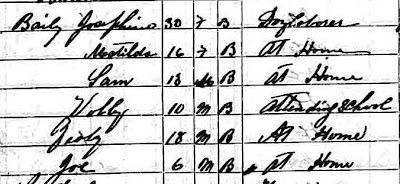 Baily Josephine 30 F B Day laborer
Matilda 16 F B At Home
Sam 13 M B at Home
Volby 10 M B attending School
18 M B At Home
Joe 6 M B at Home